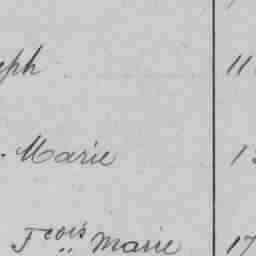 eph 11
. Marie 1
Fcois Marie 17